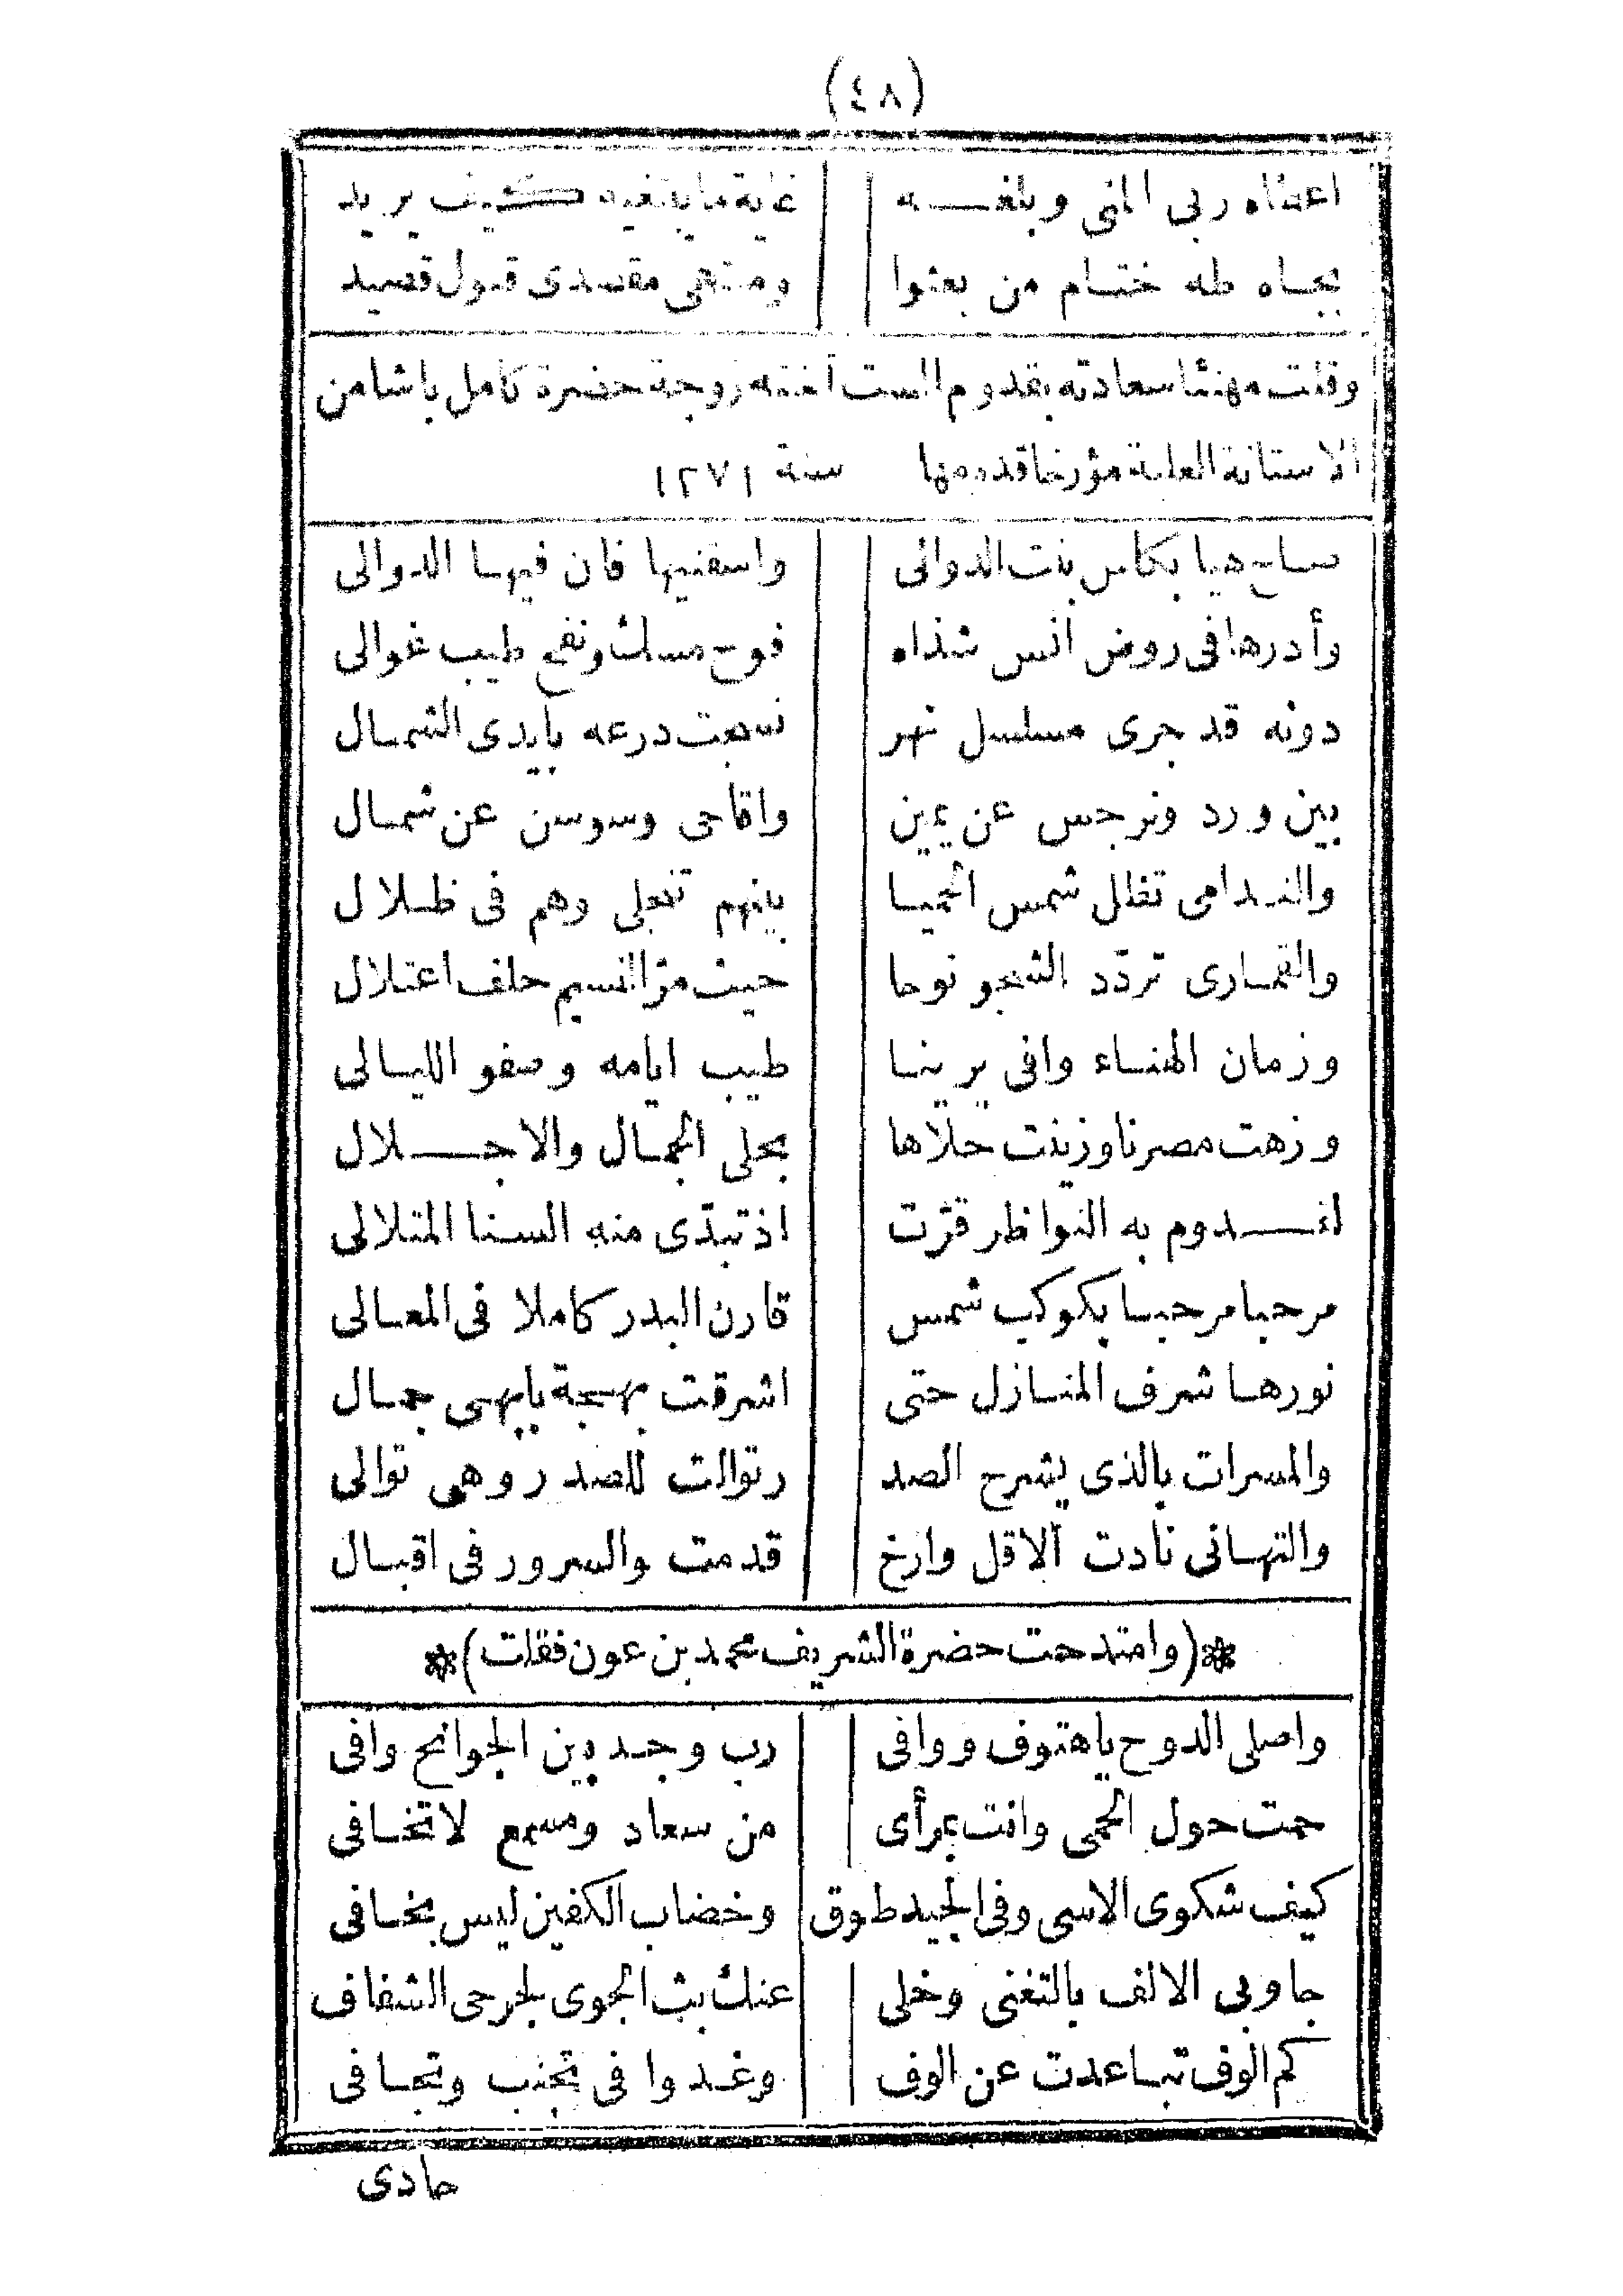 (٤٨)
اعطاه ربى المنى وبلغه غاية ما يبتغيه كيف يريد
بجاه طه ختام من بعثوا ومنتهى مقصدى قبول قصيد
وقلت مهنئا سعادته بقدوم الست اخته زوجة حضرة كامل باشا من
الاستانة العلية مؤرخا قدومها سنة ١٢٧١
صاح هيا بكاس بنت الدوالى واسقنيها فان فيها الدوالى
وأدرها فى روض انس شذاه فوح مسك ونفح طيب غوالى
دونه قد جرى مسلسل نهر نسجت درعه بأيدى الشمال
بين ورد ونرجس عن يمين واقاحى وسوسن عن شمال
والندامى تظال شمس الحميا بينهم تنجلى وهم فى ظلال
والقمارى تردّد الشجو نوحا حيث مرّ النسيم حلف اعتلال
وزمان الهناء وافى يرينا طيب ايامه وصفو الليالى
وزهت مصرنا وزينت حلاها بحلى الجمال والاجلال
لقدوم به النواظر قرّت اذ تبدّى منه السنا المتلالى
مرحبا مرحبا بكوكب شمس قارن البدر كاملا فى المعالى
نورها شرف المنازل حتى اشرقت بهجة بابهى جمال
والمسرات بالذى يشرح الصد ر توالت للصدر وهى توالى
والتهانى نادت ألا قل وارخ قدمت والسرور فى اقبال
*(وامتدحت حضرة الشريف محمد بن عون فقلت)*
واصلى الدوح يا هتوف ووافى رب وجد بين الجوانح وافى
حمت حول الحمى وانت بمرأى من سعاد ومسمع لا تخافى
كيف شكوى الاسى وفى الجيد طوق وخضاب الكفين ليس بخافى
جاوبى الالف بالتغنى وخلى عنك بث الجوى لجرحى الشغاف
كم الوف تباعدت عن الوف وغدوا فى تجنب وتجافى
حادى